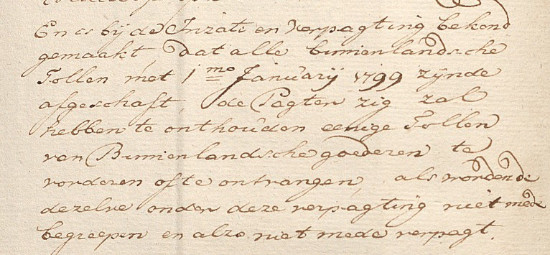 En es bij de Inzate en verpagting bekond
gemaakt, dat alle binnenlandsche
Tollen met 1mo Januarij 1799 zijnde
afgeschaft, de Pagter zig zal
hebben te onthouden eenige Tollen
van Binnenlandsche goederen te
vorderen ofte ontvangen, als wordende
dezelve onder deze verpagting niet mede
begreepen en alzo niet mede verpagt.